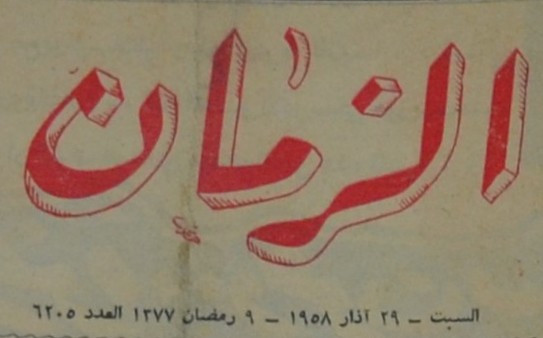 الزمان
السبت - ٢٩ آذار ١٩٥٨ - ٩ رمضان ١٣٧٧ العدد ٦٢٠٥